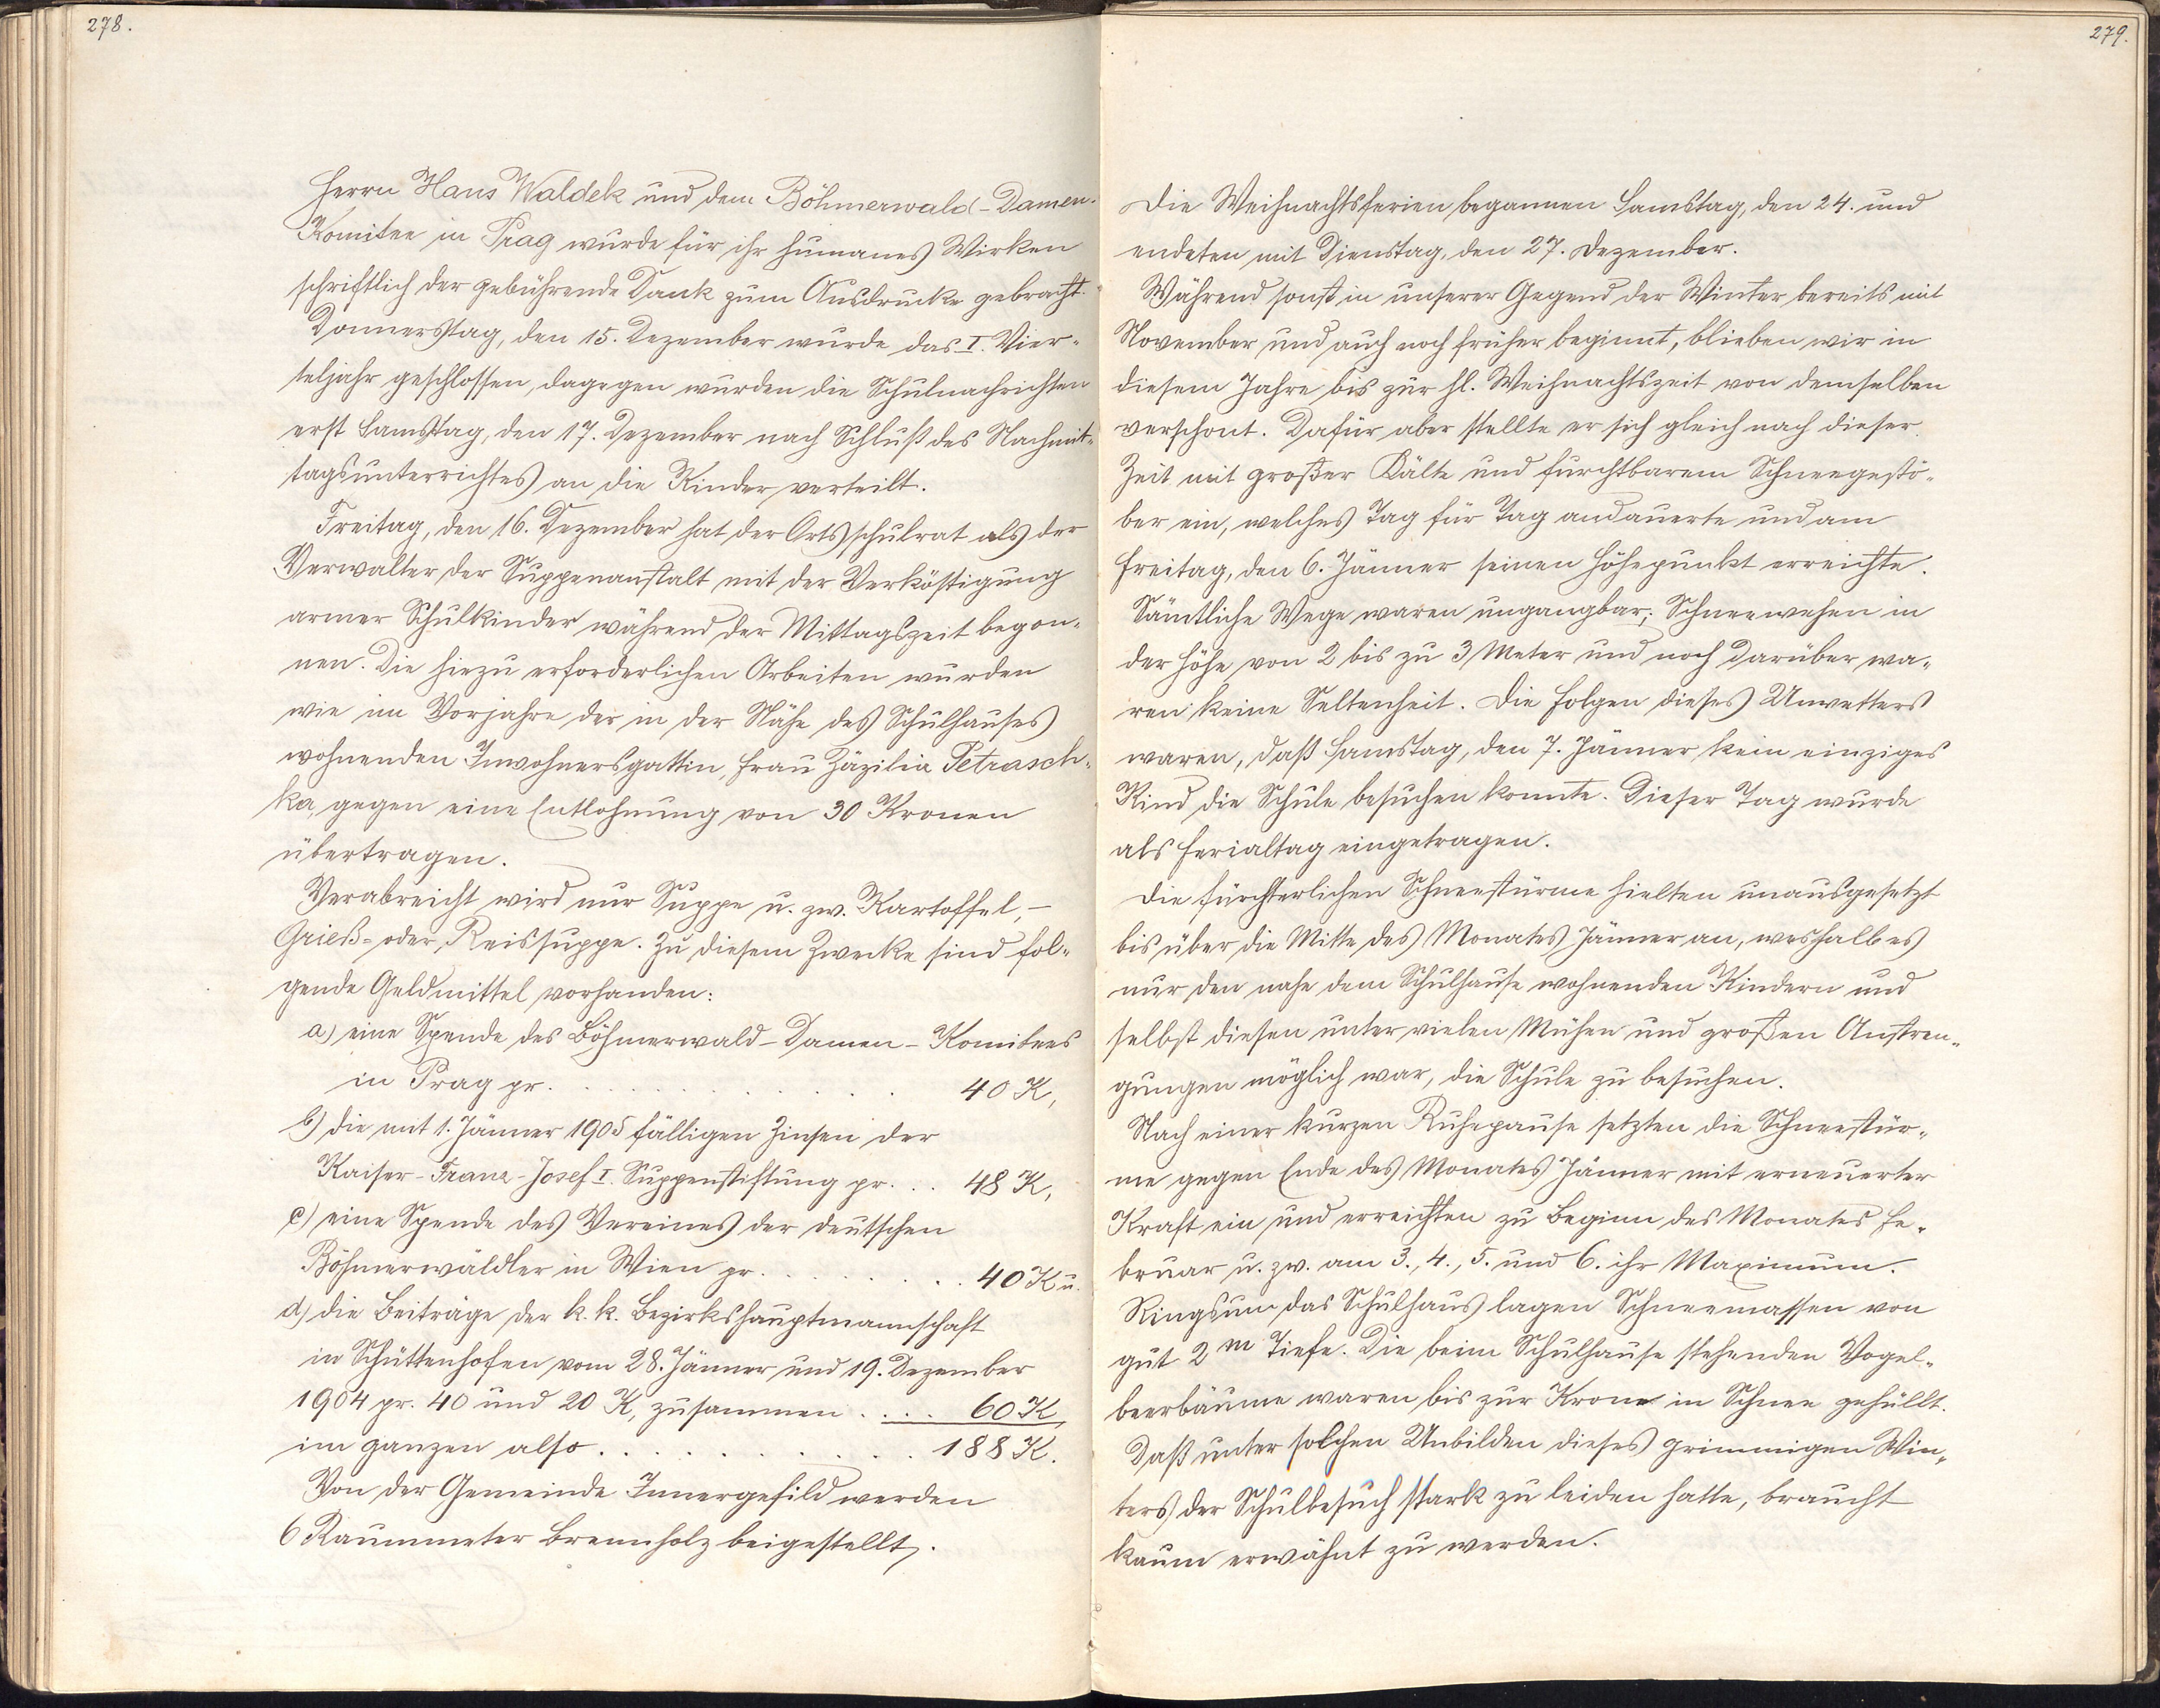 278.
Herrn Hans Waldek und dem Böhmerwald-Damen-
Komitee in Prag wurde für ihr humanes Wirken
schriftlich der gebührende Dank zum Ausdrucke gebracht.
Donnerstag, den 15. Dezember wurde das I. Vier-
teljahr geschlossen, dagegen wurden die Schulnachrichten
erst Samstag, den 17. Dezember nach Schluß des Nachmit-
tagsunterrichtes an die Kinder verteilt.
Freitag, den 16. Dezember hat der Ortsschulrat als der
Verwalter der Suppenanstalt mit der Verköstigung
armer Schulkinder während der Mittagszeit begon-
nen. Die hiezu erforderlichen Arbeiten wurden
wie im Vorjahre der in der Nähe des Schulhauses
wohnenden Inwohnersgattin, Frau Zäzilia Petrasch-
ka, gegen eine Entlohnung von 30 Kronen
übertragen.
Verabreicht wird nur Suppe u. zw. Kartoffel,-
Grieß- oder Reissuppe. Zu diesem Zwecke sind fol-
gende Geldmittel vorhanden:
a) eine Spende des Böhmerwald-Damen-Komitees
in Prag pr. . . . . . . . . . . . 40 K,
b) die mit 1. Jänner 1905 fälligen Zinsen der
Kaiser-Franz-Josef I. Suppenstiftung pr. . . 48 K,
c) eine Spende des Vereines der deutschen
Böhmerwäldler in Wien pr. . . . . . . . 40 K u.
d) die Beiträge der k. k. Bezirkshauptmannschaft
in Schüttenhofen vom 28. Jänner und 19. Dezember
1904 pr. 40 und 20 K, zusammen . . . . 60 K
im ganzen also . . . . . . . . . . 188 K.
Von der Gemeinde Innergefild werden
6 Raummeter Brennholz beigestellt.
279.
Die Weihnachtsferien begannen Samstag, den 24. und
endeten mit Dienstag, den 27. Dezember.
Während sonst in unserer Gegend der Winter bereits mit
November und auch noch früher beginnt, blieben wir in
diesem Jahre bis zur hl. Weihnachtszeit von demselben
verschont. Dafür aber stellte er sich gleich nach dieser
Zeit mit großer Kälte und furchtbarem Schneegestö-
ber ein, welches Tag für Tag andauerte und am
Freitag, den 6. Jänner seinen Höhepunkt erreichte.
Sämtliche Wege waren ungangbar; Schneewehen in
der Höhe von 2 bis zu 3 Meter und noch darüber wa-
ren keine Seltenheit. Die Folgen dieses Unwetters
waren, daß Samstag, den 7. Jänner kein einziges
Kind die Schule besuchen konnte. Dieser Tag wurde
als Ferialtag eingetragen.
Die fürchterlichen Schneestürme hielten unausgesetzt
bis über die Mitte des Monates Jänner an, weshalb es
nur den nahe dem Schulhause wohnenden Kindern und
selbst diesen unter vielen Mühen und großen Anstren-
gungen möglich war, die Schule zu besuchen.
Nach einer kurzen Ruhepause setzten die Schneestür-
me gegen Ende des Monates Jänner mit erneuerter
Kraft ein und erreichten zu Beginn des Monates Fe-
bruar u. zw. am 3., 4., 5. und 6. ihr Maximum.
Ringsum das Schulhaus lagen Schneemassen von
gut 2 m Tiefe. Die beim Schulhause stehenden Vogel-
beerbäume waren bis zur Krone in Schnee gehüllt.
Daß unter solchen Unbilden dieses grimmigen Win-
ters der Schulbesuch stark zu leiden hatte, braucht
kaum erwähnt zu werden.